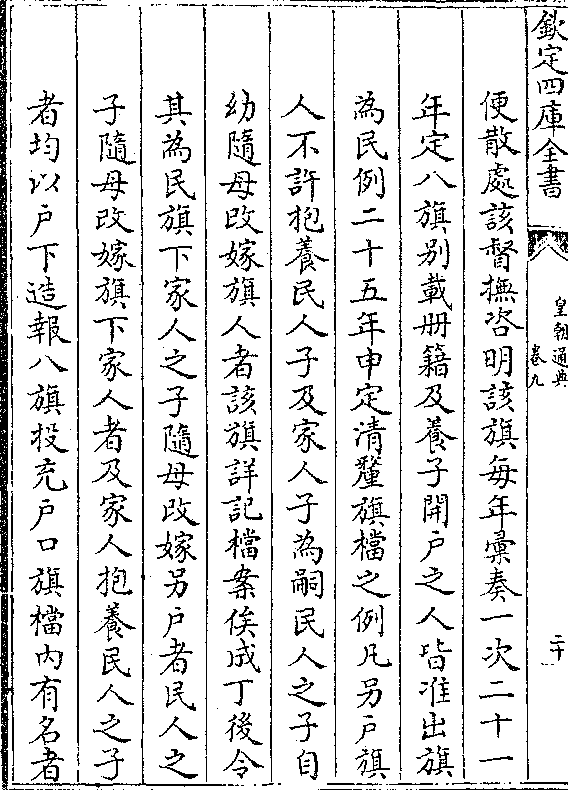 欽定四庫全書
皇朝通典
卷九
二十
便散處該督撫咨明該旗每年彚奏一次二十一
年定八旗别載册籍及養子開户之人皆准出旗
為民例二十五年申定清釐旗檔之例凡另户旗
人不許抱養民人子及家人子為嗣民人之子自
幼隨母改嫁旗人者該旗詳記檔案俟成丁後令
其為民旗下家人之子隨母改嫁另户者民人之
子隨母改嫁旗下家人者及家人抱養民人之子
者均以户下造報八旗投充户口旗檔内有名者